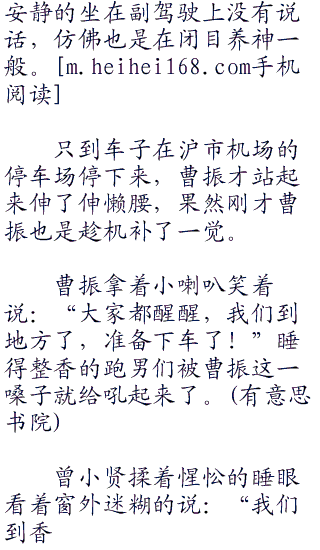 安静的坐在副驾驶上没有说
话，仿佛也是在闭目养神一
般。[m.heihei168.com手机
阅读]
只到车子在沪市机场的
停车场停下来，曹振才站起
来伸了伸懒腰，果然刚才曹
振也是趁机补了一觉。
曹振拿着小喇叭笑着
说：“大家都醒醒，我们到
地方了，准备下车了！”睡
得整香的跑男们被曹振这一
嗓子就给吼起来了。(有意思
书院)
曾小贤揉着惺忪的睡眼
看着窗外迷糊的说：“我们
到香